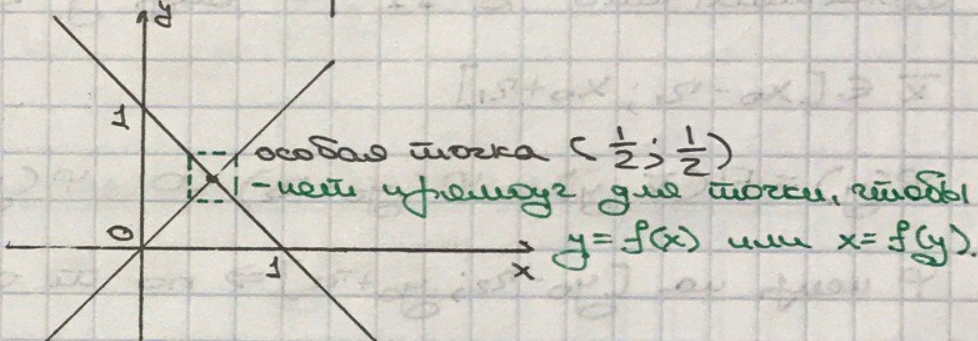 y
1
особая точка (1/2; 1/2)
- нет прямоуг для точки, чтобы
0
y = f(x) или x = f(y).
1
x